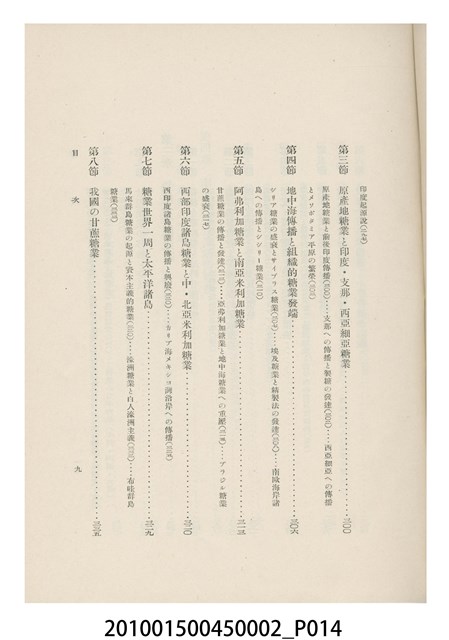 印度起源說(一九七)
第三節　原產地糖業と印度・支那・西亞細亞糖業……三〇〇
原產地糖業と前後印度傳播(三〇〇)……支那への傳播と製糖の發達(三〇三)……西亞細亞への傳播
とメソポタミア平原の繁榮
第四節　地中海傳播と組織的糖業發端……三〇六
シリア糖業の盛衰とサイプリス糖業……埃及糖業と精製法の發達……南歐海岸諸
島への傳播とシシリー糖業(三一〇)
第五節　阿弗利加糖業と南亞米利加糖業……三一三
甘蔗糖業の傳播と發達……亞弗利加糖業と地中海糖業への重壓……ブラジル糖業
の盛衰
第六節　西部印度諸島糖業と中・北亞米利加糖業……三二〇
西印度諸島糖業の傳播と興廢……カリブ海メキシコ灣沿岸への傳播
第七節　糖業世界一周と太平洋諸島……三二九
馬來群島糖業の起源と資本主義的糖業……濠洲糖業と白人濠洲主義……布哇群島
糖業
第八節　我國の甘蔗糖業……三三五
目次
九
201001500450002_P014